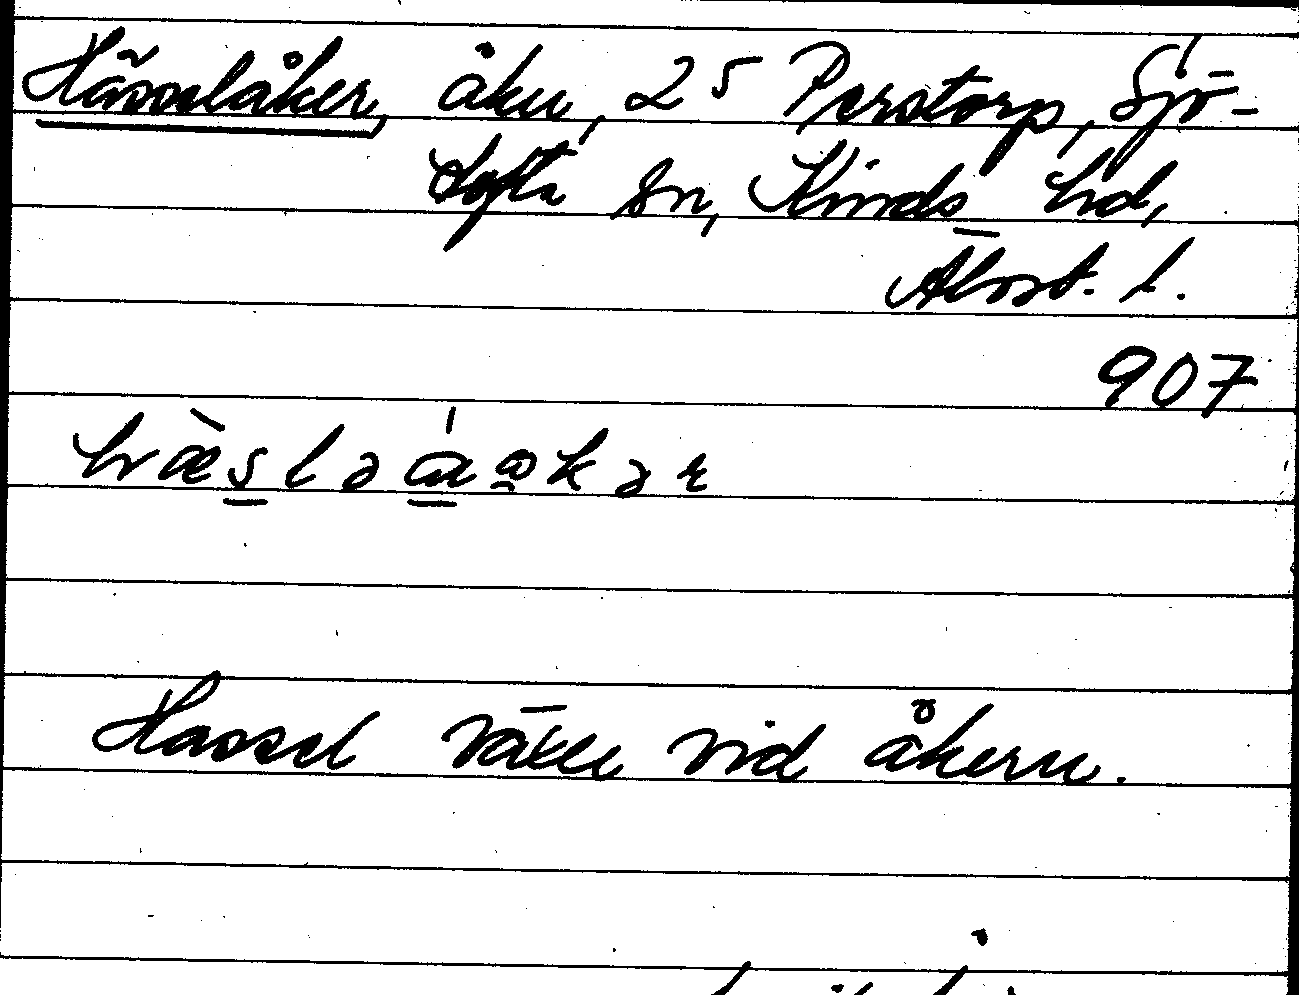 Hässelåker, åker, 25 Perstorp, Sjö-
tofta sn, Kinds hd,
Älvsb. l.
907
hræ̀sləáåkər
Hassel växer vid åkern.